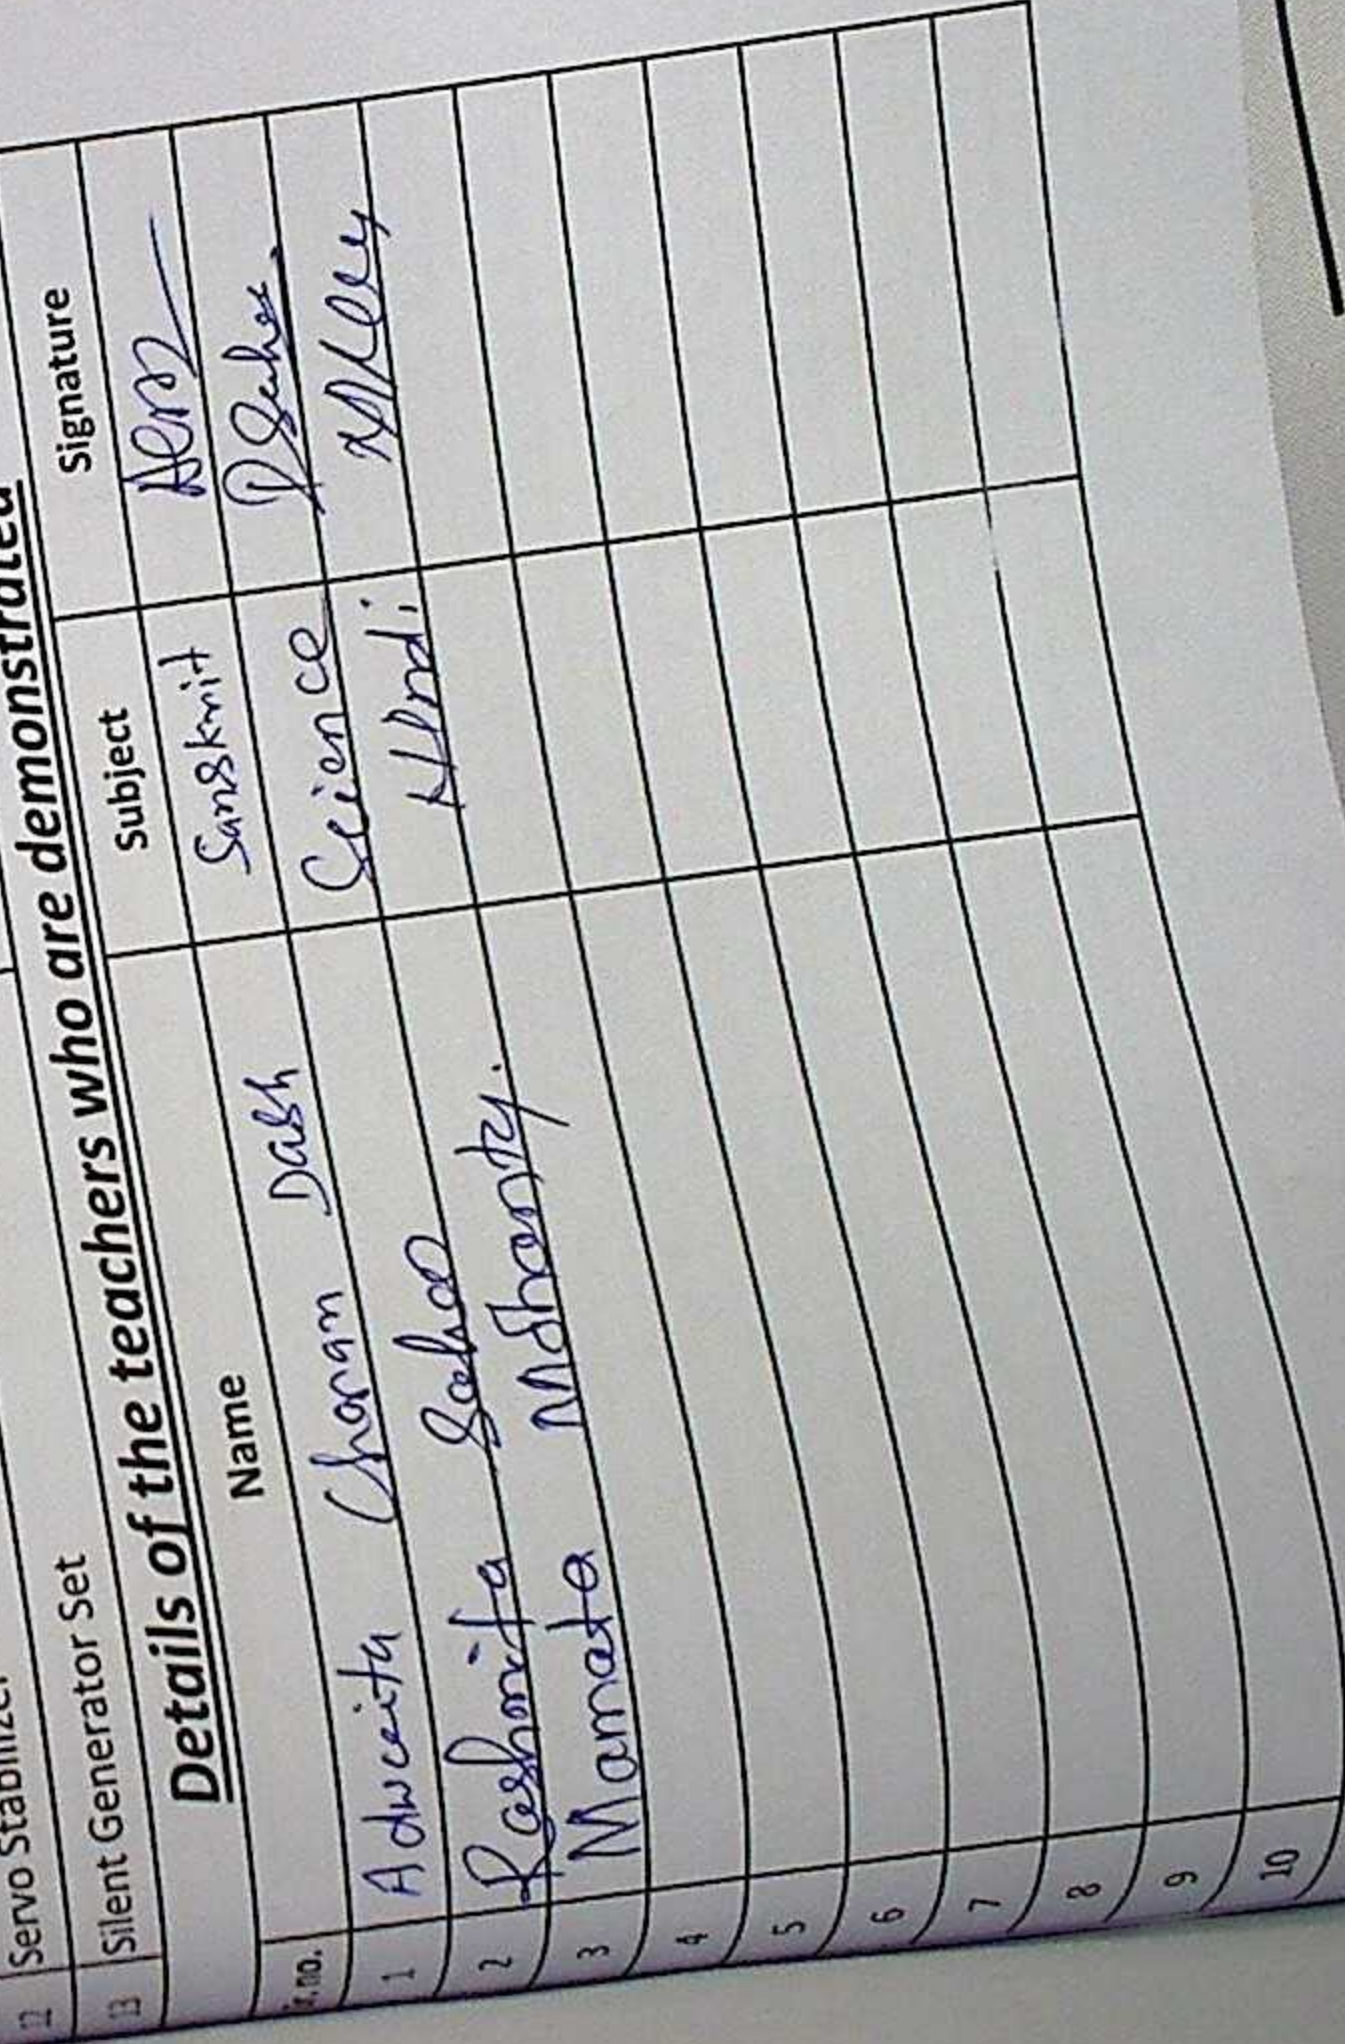 12 Servo Stabilizer
13 Silent Generator Set
Details of the teachers who are demonstrated
Sr.no. Name Subject Signature
1 Adwceita Charan Dash Sanskrit
2 Rashmita Sahoo Science
3 Mamata Mohanty. Hindi
4
5
6
7
8
9
10